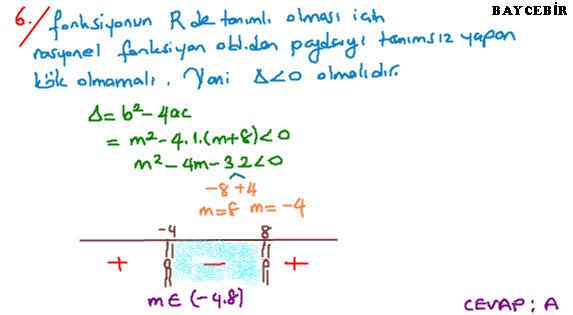 BAYCEBİR
6. fonksiyonun R de tanımlı olması için
rasyonel fonksiyon old.dan paydayı tanımsız yapan
kök olmamalı. Yani Δ<0 olmalıdır.
Δ=b²-4ac
=m²-4.1.(m+8)<0
m²-4m-32<0
-8+4
m=8 m=-4
-4 8
+ - +
m∈(-4.8)
CEVAP: A